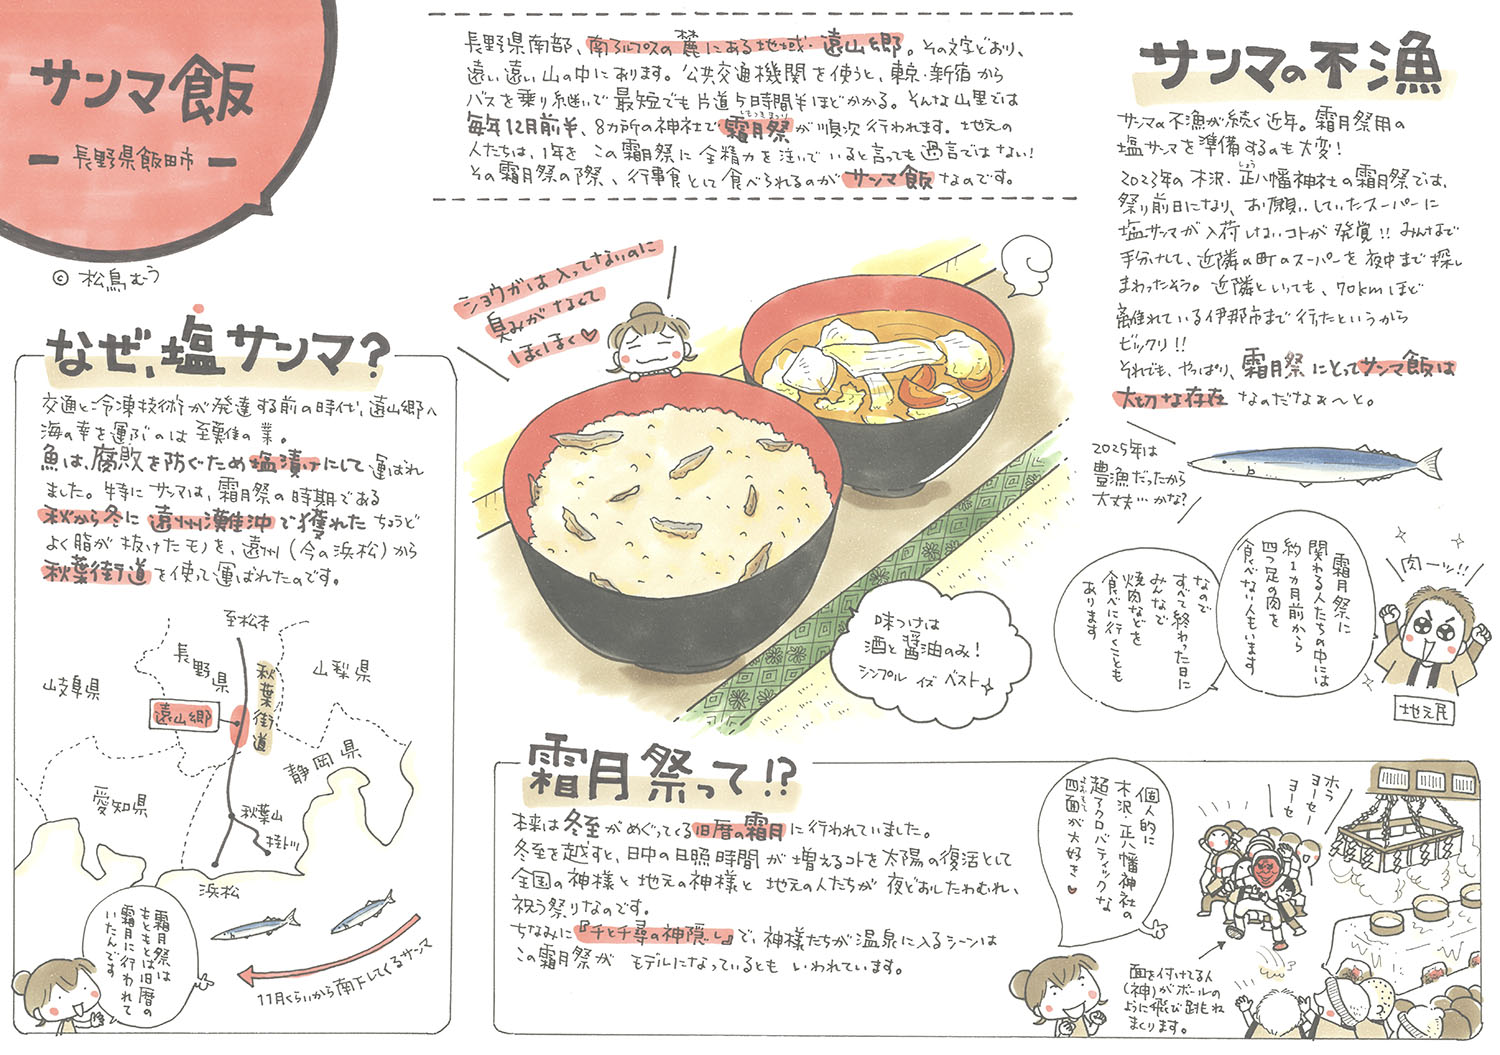 サンマ飯
長野県飯田市
© 松鳥むう
長野県南部、南アルプスの麓にある地域・遠山郷。その文字どおり、
遠い遠い山の中にあります。公共交通機関を使うと、東京・新宿から
バスを乗り継いで最短でも片道5時間半ほどかかる。そんな山里では
毎年12月前半、8カ所の神社で霜月祭が順次行われます。地元の
しもつきまつり
人たちは、1年をこの霜月祭に全精力を注いでいると言っても過言ではない!
その霜月祭の際、行事食として食べられるのがサンマ飯なのです。
サンマの不漁
サンマの不漁が続く近年。霜月祭用の
塩サンマを準備するのも大変!
2023年の木沢・正八幡神社の霜月祭では、
しょう
祭り前日になり、お願いしていたスーパーに
塩サンマが入荷しないコトが発覚!!みんなで
手分けして、近隣の町のスーパーを夜中まで探し
まわったそう。近隣といっても、70kmほど
離れている伊那市まで行ったというから
ビックリ!!
それでも、やっぱり、霜月祭にとってサンマ飯は
大切な存在なのだなぁ〜と。
2025年は
豊漁だったから
大丈夫…かな?
霜月祭に
関わる人たちの中には
約1カ月前から
四つ足の肉を
食べない人もいます
なので
すべて終わった日に
みんなで
焼肉などを
食べに行くことも
あります
肉ーッ!!
地元民
ショウガは入ってないのに
臭みがなくて
ほくほく♡
味つけは
酒と醤油のみ!
シンプル イズ ベスト
なぜ、塩サンマ?
交通と冷凍技術が発達する前の時代、遠山郷へ
海の幸を運ぶのは至難の業。
魚は、腐敗を防ぐため塩漬けにして運ばれ
ました。特にサンマは、霜月祭の時期である
秋から冬に遠州灘沖で獲れたちょうど
よく脂が抜けたモノを、遠州(今の浜松)から
秋葉街道を使って運ばれたのです。
至松本
長野県
山梨県
岐阜県
秋葉街道
遠山郷
静岡県
愛知県
秋葉山
浜松
11月くらいから南下してくるサンマ
霜月祭は
もともとは旧暦の
霜月に行われて
いたんです
霜月祭って!?
本来は冬至がめぐってくる旧暦の霜月に行われていました。
冬至を越すと、日中の日照時間が増えるコトを太陽の復活として
全国の神様と地元の神様と地元の人たちが夜どおしたわむれ、
祝う祭りなのです。
ちなみに『千と千尋の神隠し』で、神様たちが温泉に入るシーンは
この霜月祭がモデルになっているともいわれています。
個人的に
木沢・正八幡神社の
超アクロバティックな
四面が大好き♥
ホラ
ヨーセー
ヨーセ
面を付けてる人
(神)がボールの
ように飛び跳ね
まくります。